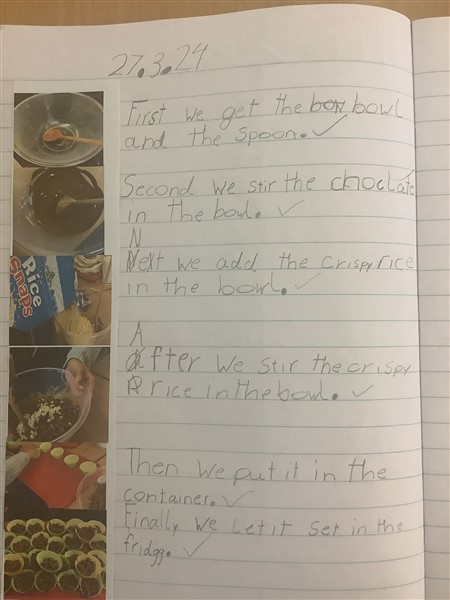 27.3.24
First we get the box bowl
and the spoon. ✓
Second we stir the choclate
in the bowl. ✓
N
Next we add the crispy rice
in the bowl. ✓
Rice
Snaps
A
After we stir the crispy
R rice in the bowl. ✓
Then we put it in the
container. ✓
Finally we let it set in the
fridgg. ✓